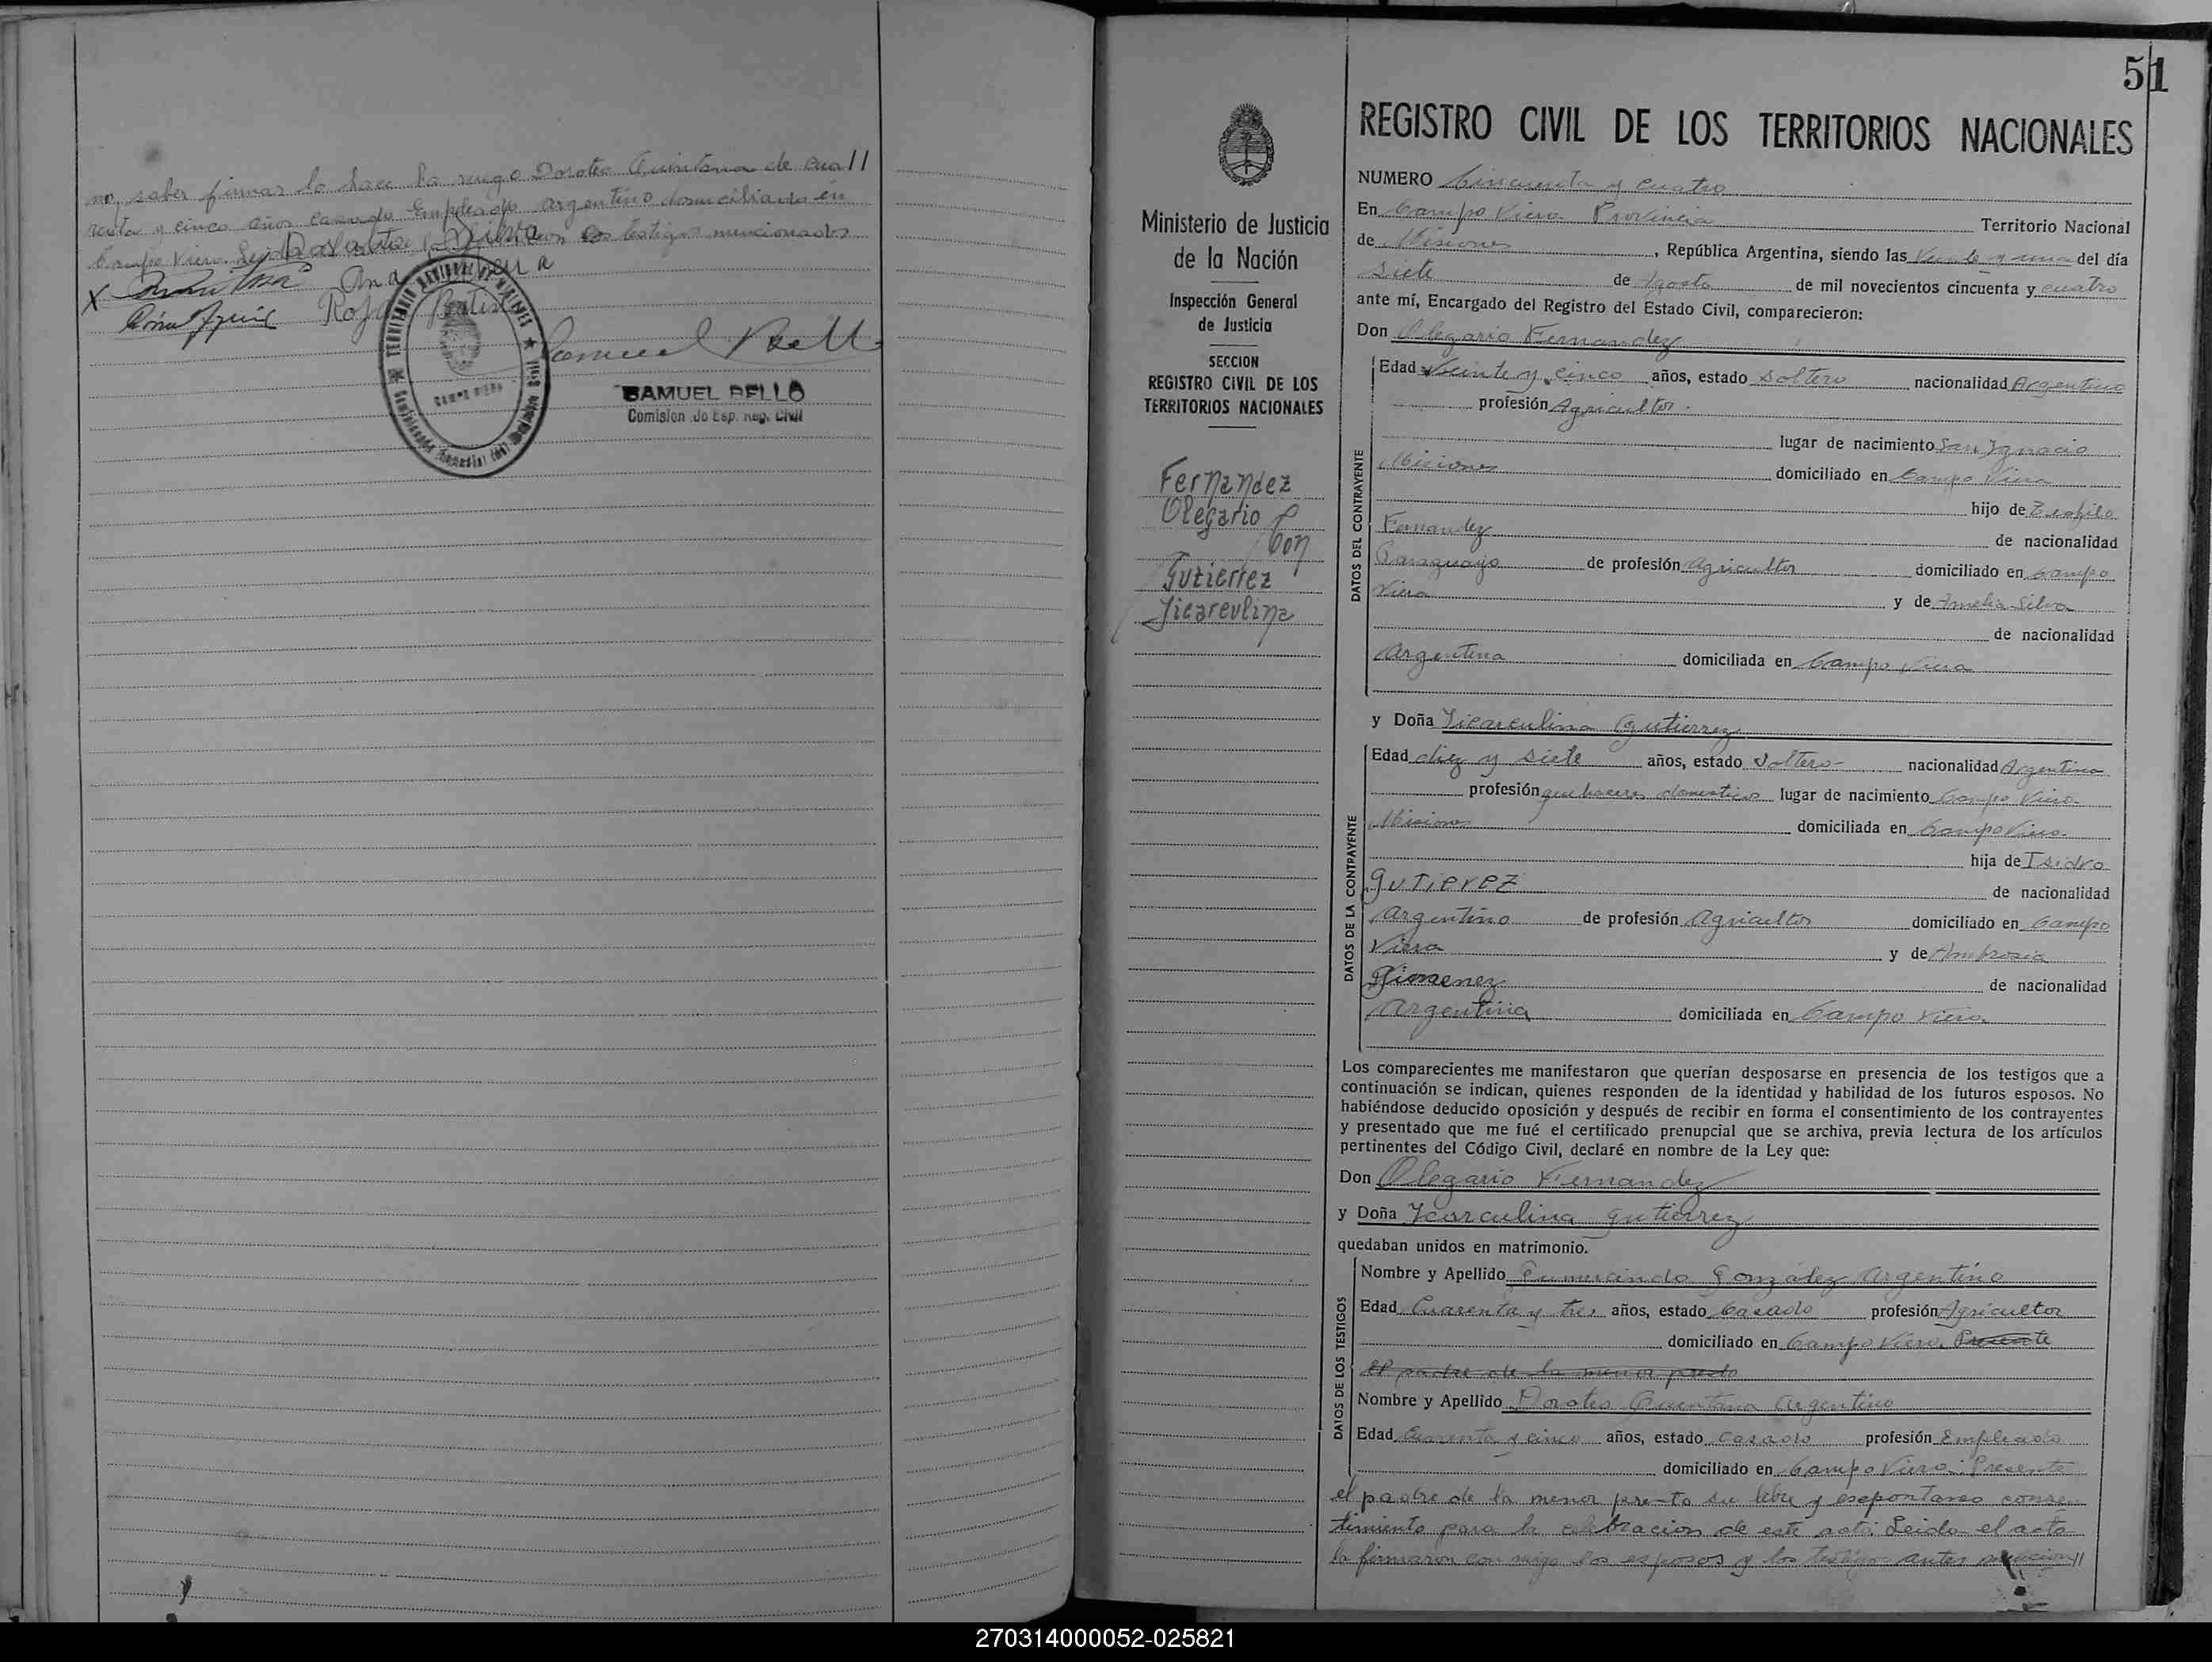 no saber firmar lo hace ha ruego Doroteo Quintana de cua//
renta y cinco años casado Empleado argentino domiciliado en
Campo Viera. los testigos mencionados
X Ana
Rosa
Samuel Bello
CAMPO VIERA
SAMUEL BELLO
Comision de Esp. Reg. Civil
51
REGISTRO CIVIL DE LOS TERRITORIOS NACIONALES
Ministerio de Justicia
de la Nación
Inspección General
de Justicia
SECCION
REGISTRO CIVIL DE LOS
TERRITORIOS NACIONALES
Fernandez
Olegario
Con
Gutierrez
Jicarculina
NUMERO Cincuenta y cuatro
En Campo Viera Provincia Territorio Nacional
de Misiones, República Argentina, siendo las Veinte y una del día
siete de Agosto de mil novecientos cincuenta y cuatro
ante mí, Encargado del Registro del Estado Civil, comparecieron:
Don Olegario Fernandez
DATOS DEL CONTRAYENTE
Edad Veinte y cinco años, estado soltero nacionalidad Argentino
profesión Agricultor.
lugar de nacimiento San Ygnacio
Misiones domiciliado en Campo Viera
hijo de
Fernandez de nacionalidad
Paraguayo de profesión Agricultor domiciliado en Campo
Viera y de Amelia Silva
de nacionalidad
Argentina domiciliada en Campo Viera
y Doña Jicarculina Gutierrez
DATOS DE LA CONTRAYENTE
Edad diez y siete años, estado Soltera nacionalidad Argentina
profesión quehaceres domesticos lugar de nacimiento Campo Viera
Misiones domiciliada en Campo Viera
hija de Isidro
Gutierez de nacionalidad
Argentino de profesión Agricultor domiciliado en Campo
Viera y de Ambrosia
Gimenez de nacionalidad
Argentina domiciliada en Campo Viera
Los comparecientes me manifestaron que querían desposarse en presencia de los testigos que a
continuación se indican, quienes responden de la identidad y habilidad de los futuros esposos. No
habiéndose deducido oposición y después de recibir en forma el consentimiento de los contrayentes
y presentado que me fué el certificado prenupcial que se archiva, previa lectura de los artículos
pertinentes del Código Civil, declaré en nombre de la Ley que:
Don Olegario Fernandez
y Doña Jcarculina Gutierrez
quedaban unidos en matrimonio.
DATOS DE LOS TESTIGOS
Nombre y Apellido Gumercindo González Argentino
Edad Cuarenta y tres años, estado Casado profesión Agricultor
domiciliado en Campo Viera. Presente
el padre de la menor presto
Nombre y Apellido Doroteo Quintana Argentino
Edad Cuarenta y cinco años, estado Casado profesión Empleado
domiciliado en Campo Viera. Presente
el padre de la menor presto su libre y esepontaneo consen
timiento para la celebracion de este acto. Leida el acta
la firmaron con migo los esposos y los testigos antes mencion//
270314000052-025821